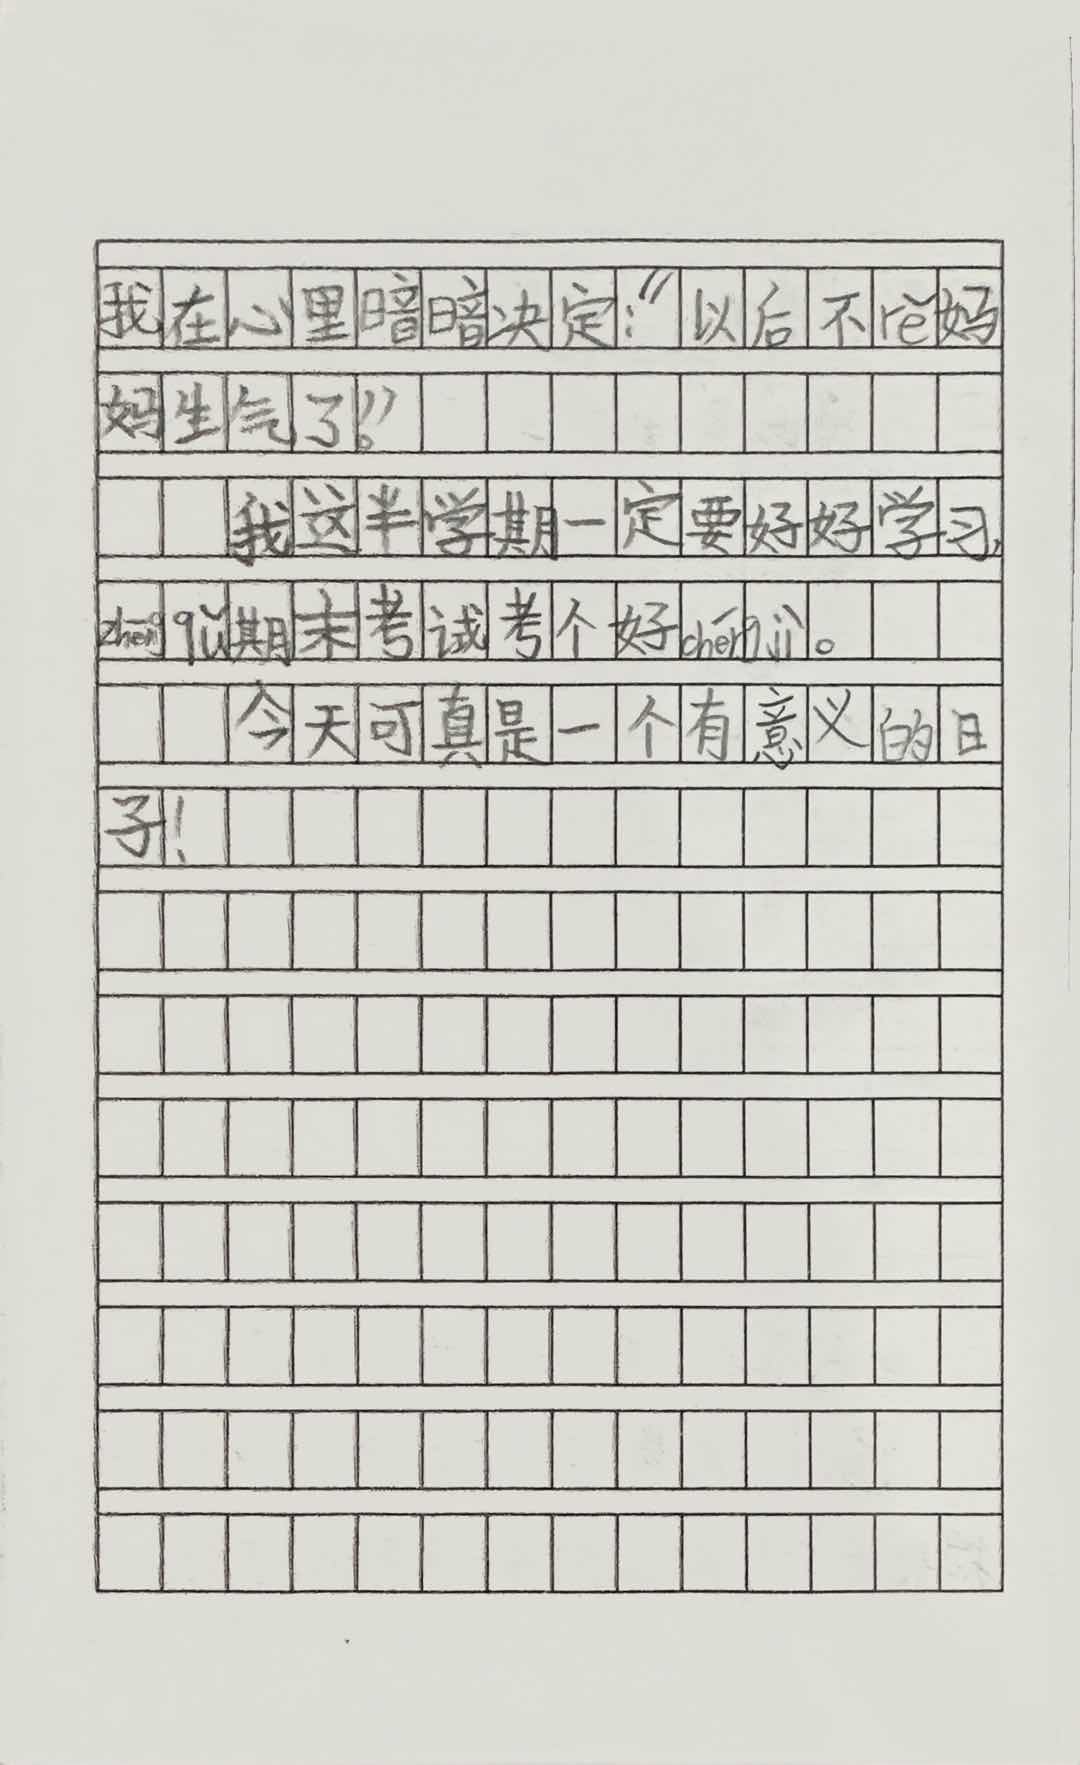 我在心里暗暗决定：“以后不rě妈
妈生气了。”
我这半学期一定要好好学习，
zhēngqǔ期末考试考个好chéngjì。
今天可真是一个有意义的日
子！